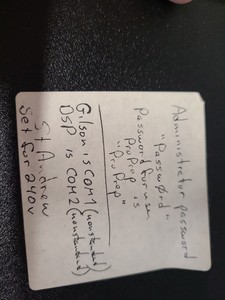 Administrator password
"Passwørd"
Password for user
ProProp is
"ProProp"
Gilson is COM1 (nonstandard)
DSP is COM2 (nonstandard)
St Andrew
Set for 240v